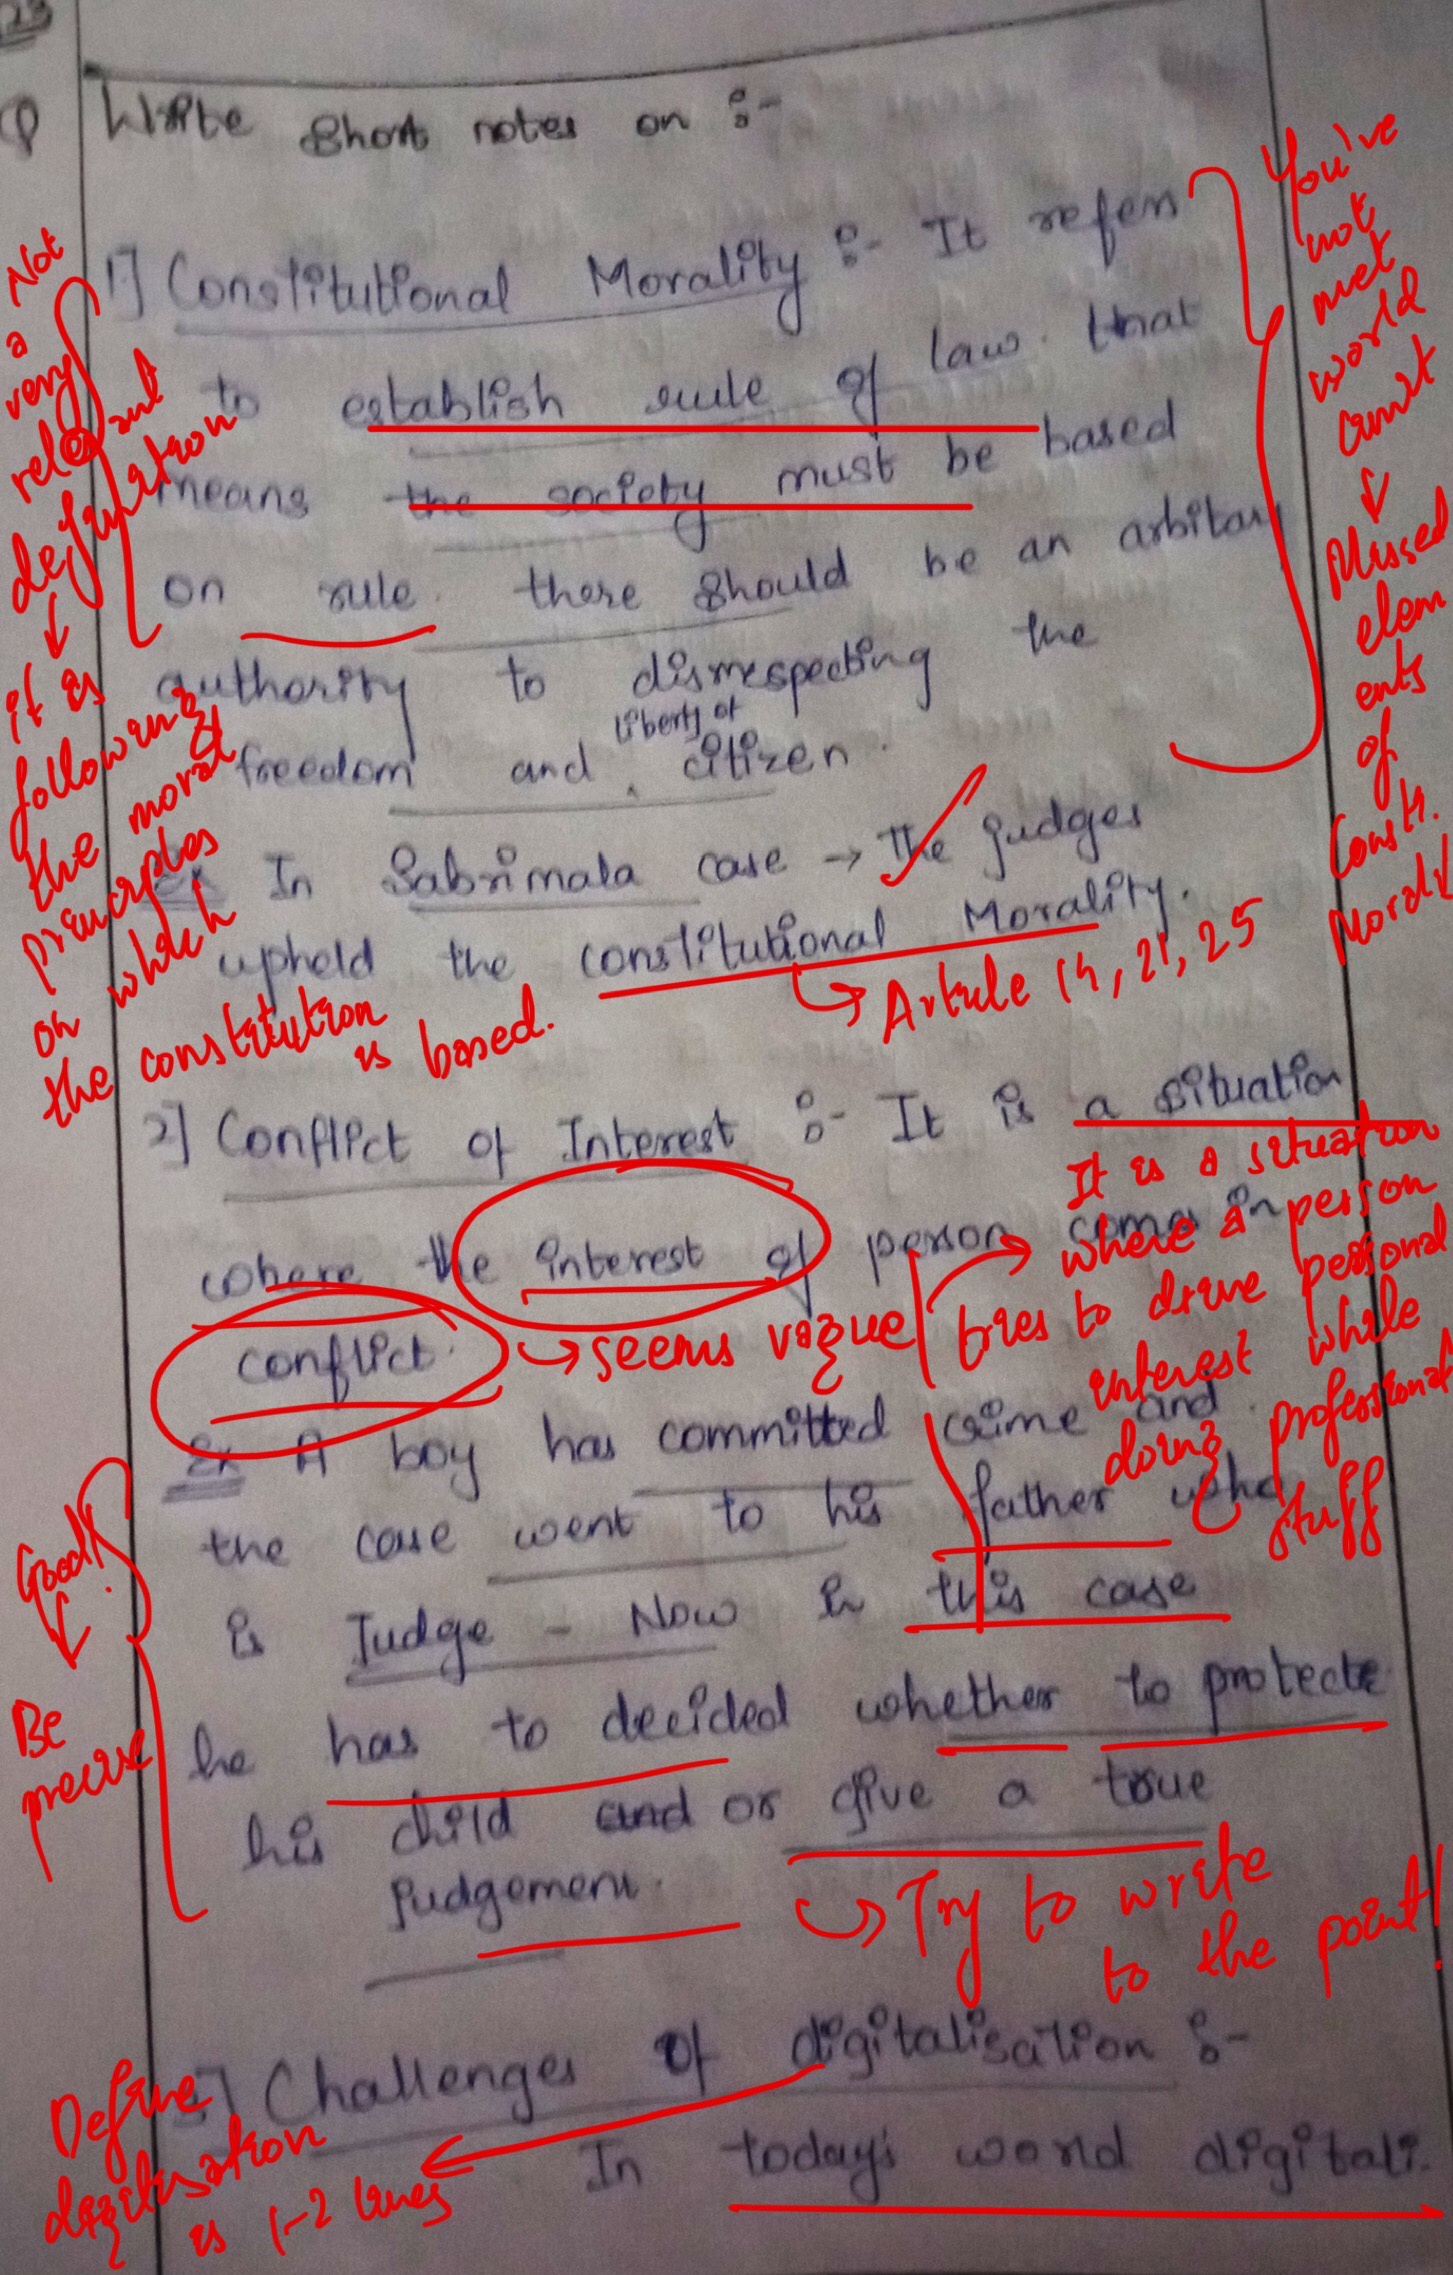 23
Q Write short notes on :-
1] Constitutional Morality :- It refers
to establish rule of law. that
means the society must be based
on rule. there should be an arbitary
authority to dismespecting the
liberty of
freedom and, citizen.
Ex In Sabrimala case → The judges
upheld the constitutional Morality.
2] Conflict of Interest :- It is a situation
where the interest of person comes in
conflict.
Ex A boy has committed crime and
the case went to his father who
is Judge - Now in this case
he has to decided whether to protecte
his child and or give a true
judgement.
3] Challenges Of digitalisation :-
In today's world digitali.
Not
a
very
relevant
definition
↓
it is
following
the moral
principles
on which
the constitution
is based.
You've
not
met
world
limit
↓
Missed
elem
ents
of
Consti.
Morality
→ Article 14, 21, 25
→ seems vague
It is a situation
where a person
tries to drive personal
interest while
doing professional
stuff
Good!
↓
Be
precise
→ Try to write
to the point!
Define
digitisation
is 1-2 lines